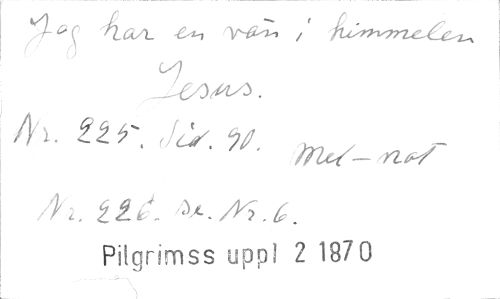 Jag har en vän i himmelen
Jesus.
Nr. 225. Sid. 90. Mel-not
Nr. 226. se. Nr. 6.
Pilgrimss uppl 2 1870